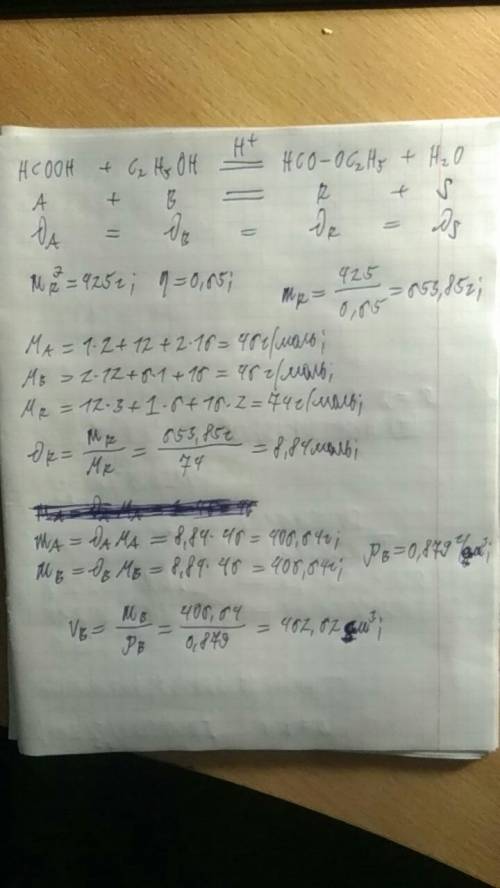 HCOOH + C₂H₅OH ⇌ H⁺ HCO-OC₂H₅ + H₂O
A + B = R + S
ϑA = ϑB = ϑR = ϑS
mRᵖ = 425г; η = 0,65; mR = 425/0,65 = 653,85г;
MA = 1·2+12+2·16 = 46г/моль;
MB = 2·12+6·1+16 = 46г/моль;
MR = 12·3+1·6+16·2 = 74г/моль;
ϑR = mR/MR = 653,85г/74 = 8,84моль;
mA = ϑA MA = 8,84·46 = 406,64г;
mB = ϑB MB = 8,84·46 = 406,64г; ρB = 0,879 г/см³;
VB = mB/ρB = 406,64/0,879 = 462,62 см³;